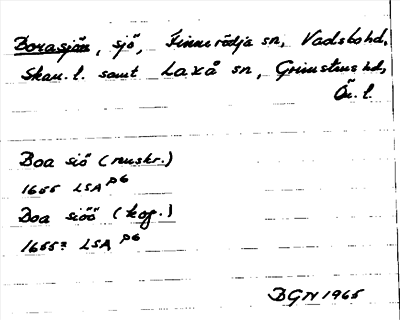 Borasjön, sjö, Finnerödja sn, Vadsbo hd,
Skar. l. samt Laxå sn, Grimstens hd,
Ör. l.
Boa siö (nuskr.)
1655 LSA P6
Boa siöö (kop.)
1655? LSA P6
BGN 1965